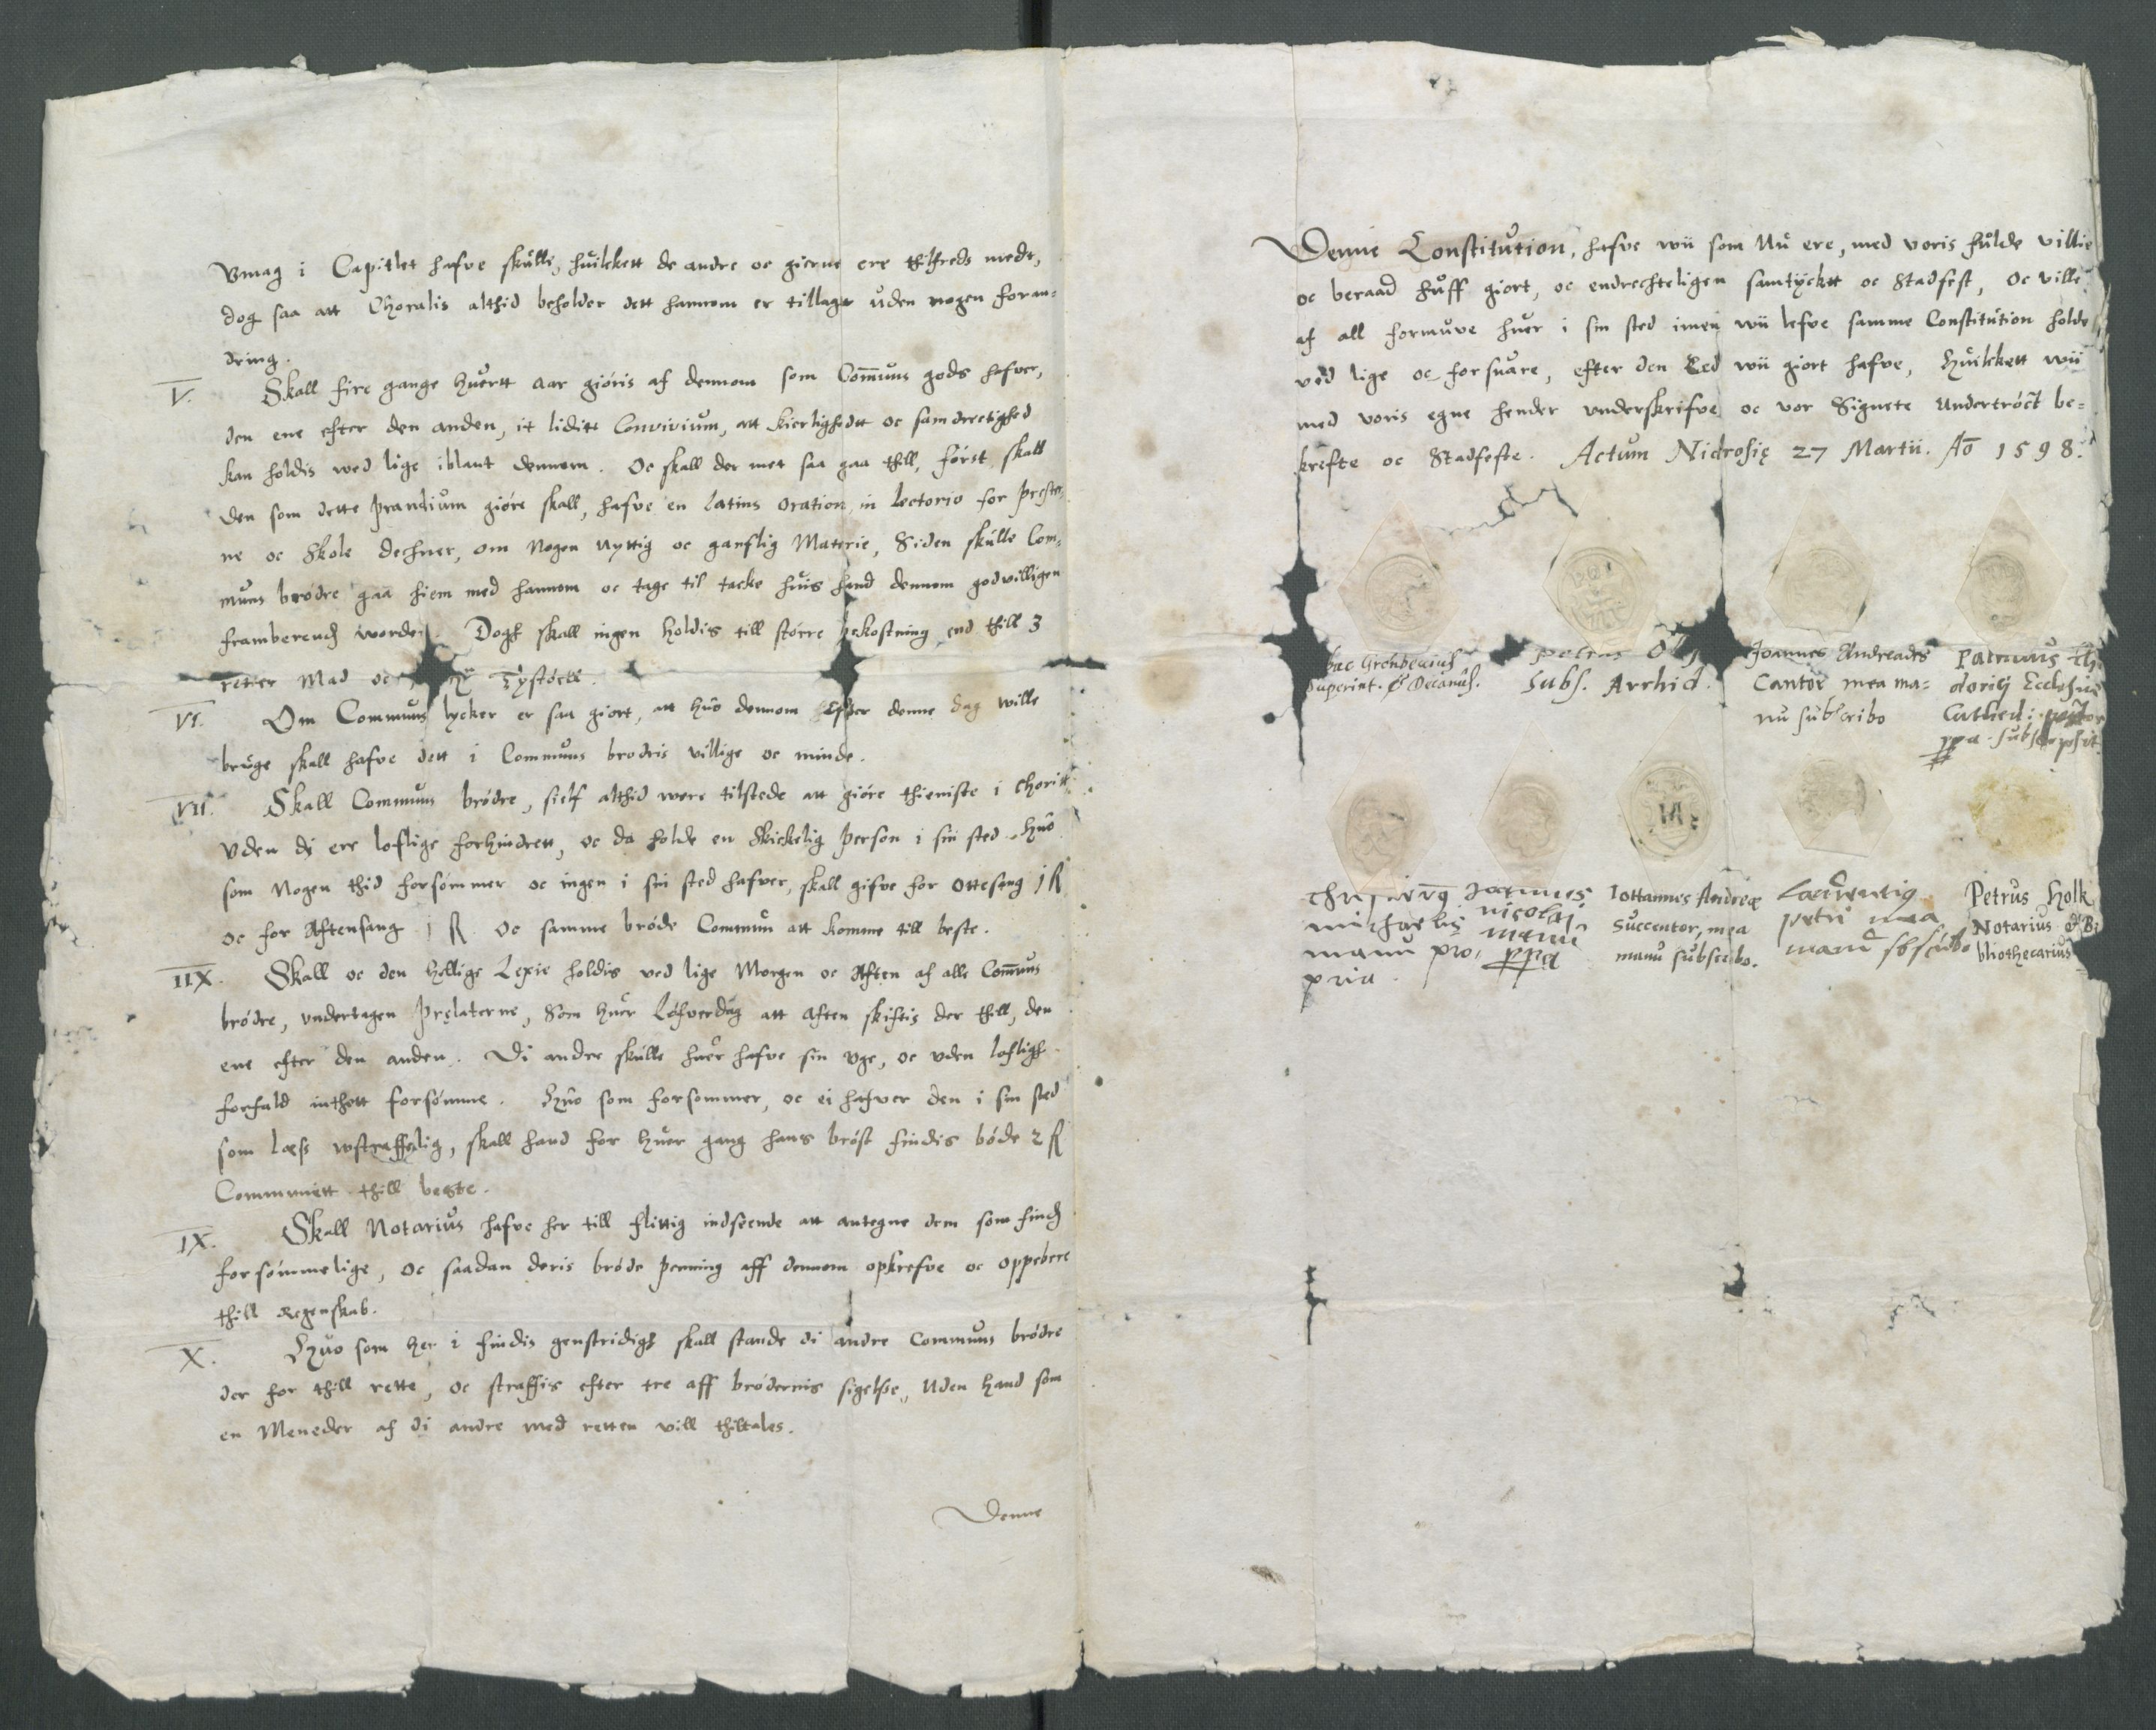 Vmag i Capitlet hafve skulle, huilckett de andre oc gierne ere thilfreds medt,
dog saa att Choralis althid beholder dett hannom er tillagt uden nogen foran-
dring.
V. Skall fire gange huertt aar giöris af dennom som Com̄uns gods hafver,
den ene efter den anden, it liditt Convivium, att kierlighedtt oc samdrectighed
kan holdis wed lige iblant dennom. Oc skall der met saa gaa thill, först skall
den som dette prandium giöre skall, hafve en latins oration, in lectorio for preste-
ne oc Skole dechner, om Nogen nyttig oc ganflig Materie, Siden skulle Com-
muns brödre gaa hiem med hannom oc tage til tacke huis hand dennom godvilligen
framberend worder. Dogh skall ingen holdis till större bekostning end thill 3
retter Mad oc Tystöell.
VI. Om Communs lycker er saa giort, att huo dennom Efter denne dag wille
bruge skall hafve dett i Communs brödris villige oc minde.
VII. Skall Communs brödre, sielf althid were tilstede att giöre thieniste i Choritt
Vden di ere loflige forhindrett, oc da holde en Skickelig person i sin sted. Huo
som Nogen thid forsömmer oc ingen i sin sted hafver, skall gifve for Ottesang 1 R
oc for Aftensang 1 R. Oc samme bröde Commun att komme till beste.
IIX. Skall oc den hellige Lexie holdis ved lige Morgen oc Aften af alle Com̄uns
brödre, vndertagen Prelaterne, Som huer Löfverdag att Aften skiftis der thill, den
ene efter den anden. Di andre skulle huer hafve sin Vge, oc vden lofligh
forfald inthett forsömme. Huo som forsommer, oc ei hafver den i sin sted
som læss wstraffelig, skall hand for huer gang hans bröst findis böde 2 R
Communitt thill beste.
IX. Skall Notarius hafve her till flittig indseende att antegne dem som find
forsömmelige, oc saadan deris bröde penning aff dennom opkrefve oc oppebere
thill Regenskab.
X. Huo som her i findis genstridigh skall stande di andre Communs brödre
der for thill rette, oc straffis efter tre aff brödernis sigelse, Uden hand som
en Meneder af di andre med retten vill thiltales.
Denne
Denne Constitution, hafve wii som Nu ere, med voris fulde villie
oc beraad huff giort, oc endrechteligen samtyckt oc Stadfest, Oc ville
af all formuve huer i sin sted imen wii lefve samme Constitution holde
ved lige oc forsuare, efter den Eed wii giort hafve, Huilckett wii
med voris egne hender vnderskrifve oc vor Signete Undertröct be-
krefte oc Stadfeste. Actum Nidrosię 27 Martii. Aō 1598.
Superint. & Decanus.
Petrus
Subs. Archid.
Joannes Andreades
Cantor mea ma-
nu subscribo
Patruus
Ecclesiae
Cathed: pastor
ppa subs
michaelis
manu pro-
pria.
Joannes
nicolai
manu
ppa
Iohannes Andreæ
Succentor, mea
manu subscribo.
Laurentius
petri mea
manu
Petrus Holk
Notarius & Bi
bliothecarius